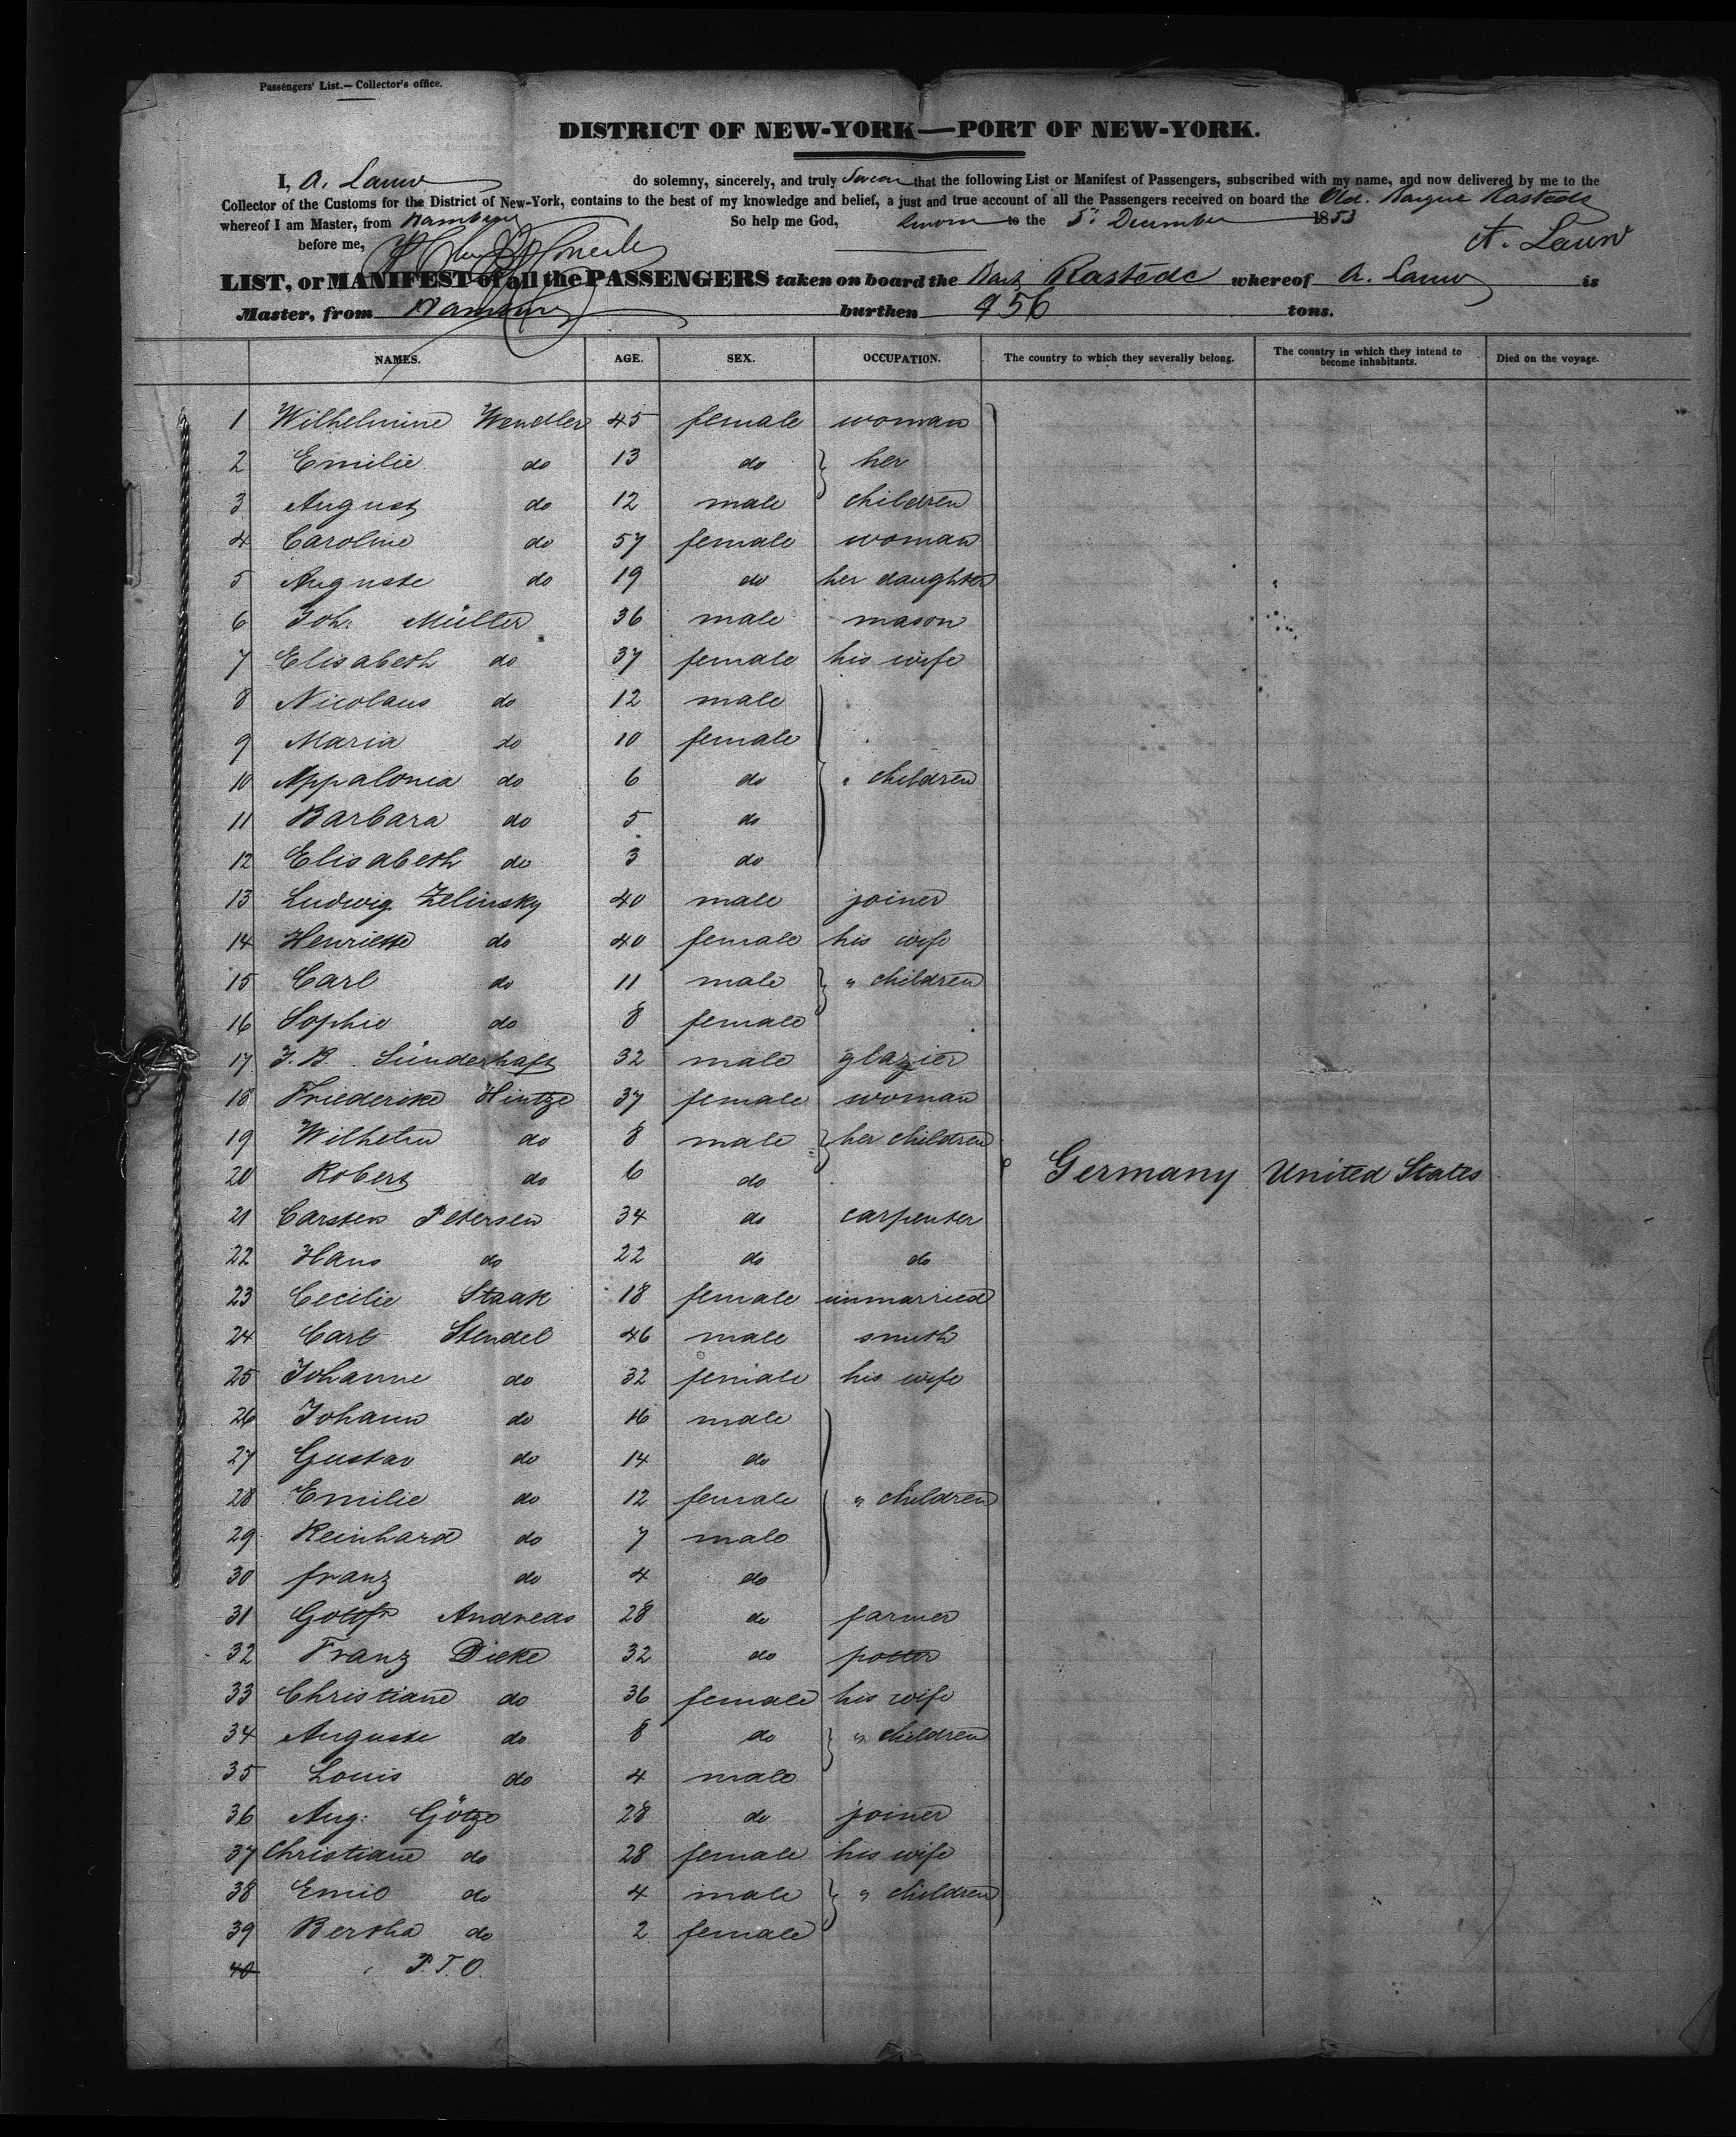 Passengers' List.—Collector's office.
DISTRICT OF NEW-YORK—PORT OF NEW-YORK.
I, A. Lauw do solemny, sincerely, and truly Swear that the following List or Manifest of Passengers, subscribed with my name, and now delivered by me to the
Collector of the Customs for the District of New-York, contains to the best of my knowledge and belief, a just and true account of all the Passengers received on board the Old. Barque Rastede
whereof I am Master, from Hamburg So help me God, Sworn to the 5th December 1853
before me,
A. Lauw
LIST, or MANIFEST of all the PASSENGERS taken on board the Bark Rastede whereof A. Lauw is
Master, from Hamburg burthen 456 tons.
NAMES. AGE. SEX. OCCUPATION. The country to which they severally belong. The country in which they intend to become inhabitants. Died on the voyage.
1 Wilhelmine Wendler 45 female woman
2 Emilie do 13 do } her
3 August do 12 male children
4 Caroline do 57 female woman
5 Auguste do 19 do her daughter
6 Joh: Müller 36 male mason
7 Elisabeth do 37 female his wife
8 Nicolaus do 12 male
9 Maria do 10 female
10 Appalonia do 6 do " children
11 Barbara do 5 do
12 Elisabeth do 3 do
13 Ludwig Zelinsky 40 male joiner
14 Henriette do 40 female his wife
15 Carl do 11 male } " children
16 Sophie do 8 female
17 J. B. Sünderhaft 32 male glazier
18 Friederike Hintze 37 female woman
19 Wilhelm do 8 male } her children
20 Robert do 6 do Germany United States
21 Carsten Petersen 34 do carpenter
22 Hans do 22 do do
23 Cecilie Staak 18 female unmarried
24 Carl Stendel 46 male smith
25 Johanne do 32 female his wife
26 Johann do 16 male
27 Gustav do 14 do
28 Emilie do 12 female " children
29 Reinhard do 7 male
30 franz do 4 do
31 Gottfr Andreas 28 do farmer
32 Franz Dieke 32 do potter
33 Christiane do 36 female his wife
34 Auguste do 8 do } " children
35 Louis do 4 male
36 Aug: Götze 28 do joiner
37 Christiane do 28 female his wife
38 Emil do 4 male } " children
39 Bertha do 2 female
40 P.T.O.